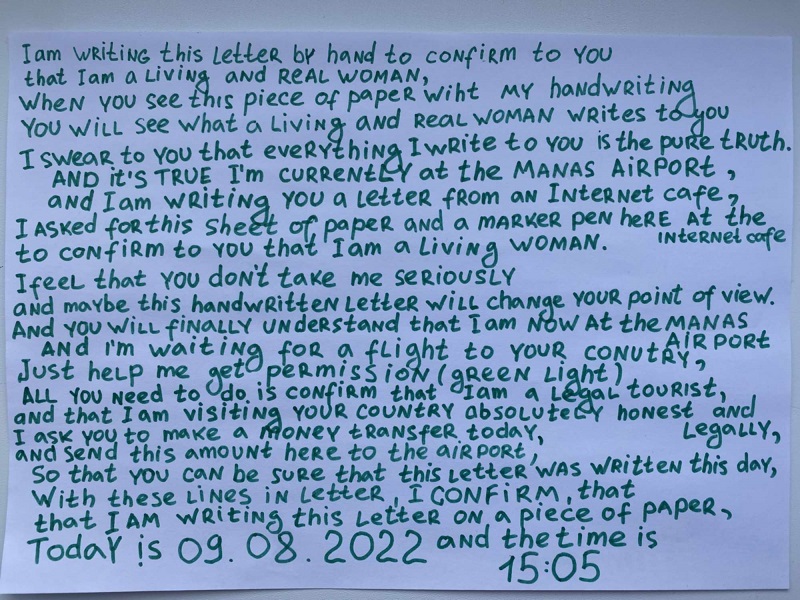 I am WRITING this Letter by hand to confirm to you
that I am a Living and Real WOMAN,
When you see this piece of paper wiht MY handwriting
You will see what a Living and Real WOMAN writes to you
I swear to you that everything I write to you is the pure truth.
AND it's TRUE I'm currently at the MANAS AiRPORT,
and I am writing you a letter from an Internet cafe,
I asked for this sheet of paper and a marker pen here At the
Internet cafe
to confirm to you that I am a Living WOMAN.
I feel that you don't take me seriously
and maybe this handwritten Letter will change your point of view.
And you will finally understand that I am NOW At the MANAS
AIRPORT
And I'm waiting for a flight to your conutry,
Just help me get permission (green Light)
All you need to do is confirm that I am a Legal tourist,
and that I am visiting your country absolutely honest and
Legally,
I ask you to make a money transfer today,
and send this amount here to the airport,
So that you can be sure that this Letter was written this day,
With these Lines in Letter, I CONFiRM, that
that I AM writing this Letter on a piece of paper,
Today is 09.08.2022 and the time is
15:05